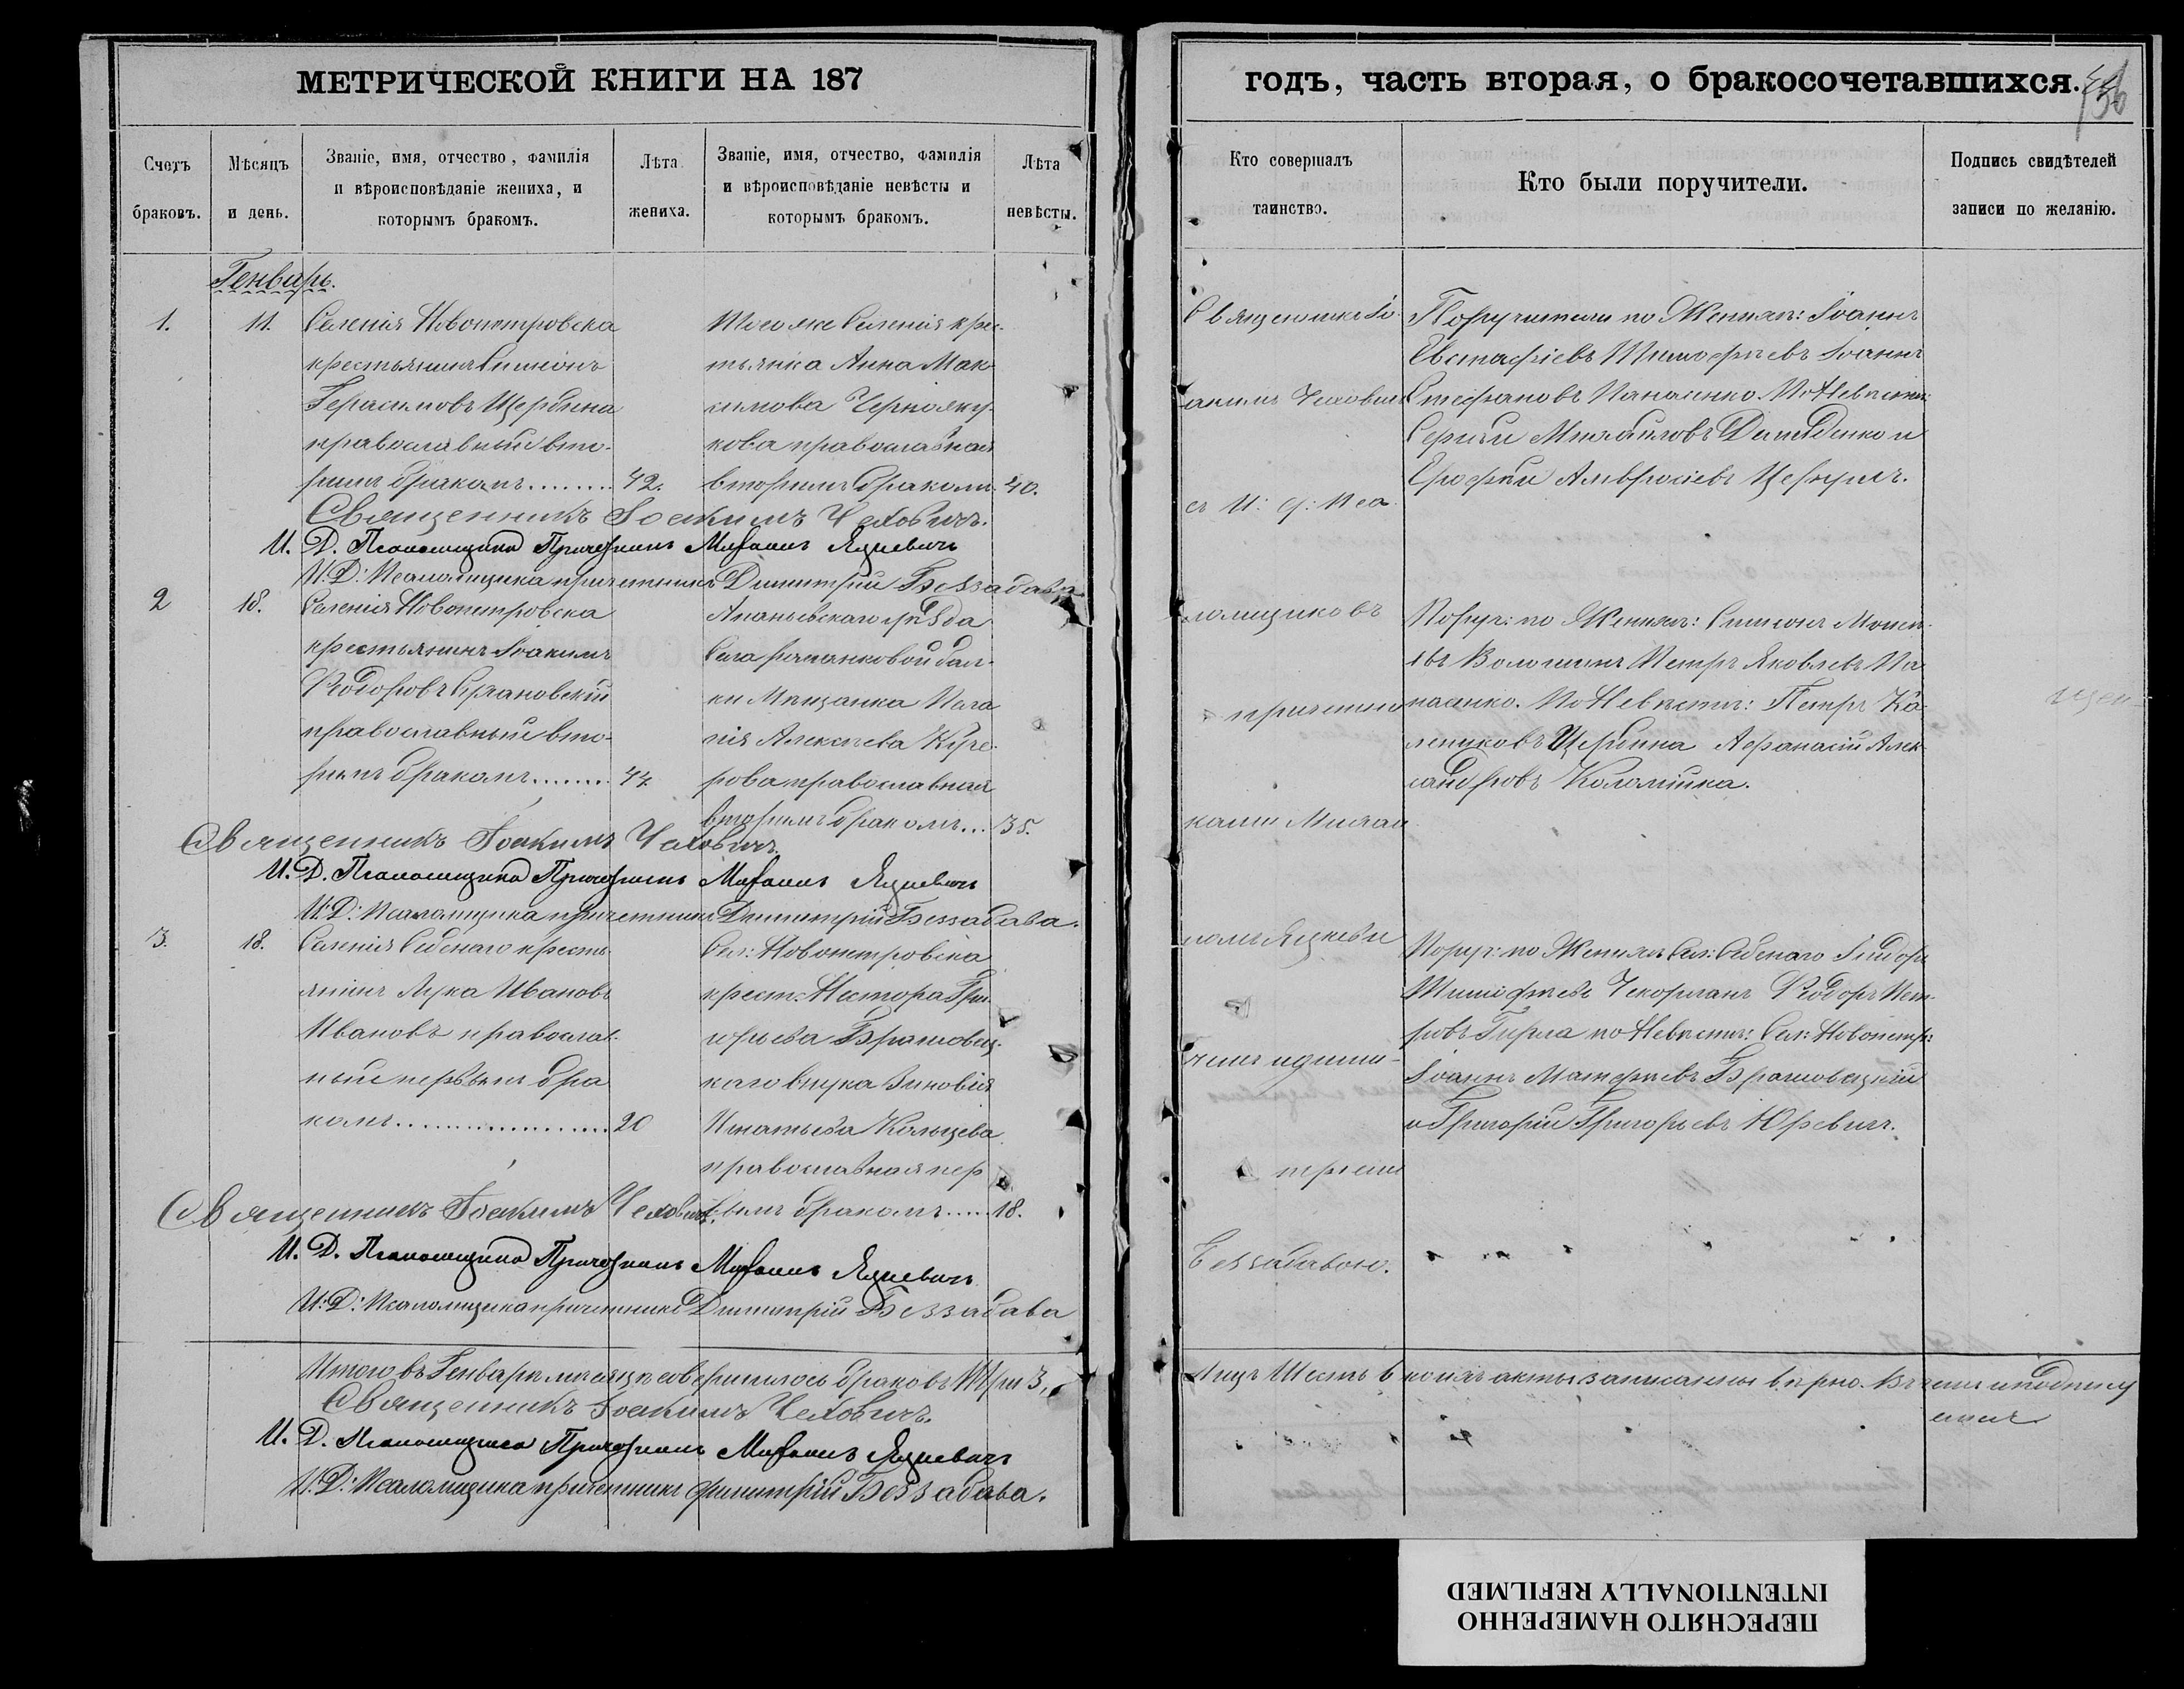 МЕТРИЧЕСКОЙ КНИГИ НА 187
Счетъ браковъ.
Мѣсяцъ и день.
Званіе, имя, отчество, фамилія
и вѣроисповѣданіе жениха, и
которымъ бракомъ.
Лѣта
жениха.
Званіе, имя, отчество, фамилія
и вѣроисповѣданіе невѣсты и
которымъ бракомъ.
Лѣта
невѣсты.
Генварь.
1.
11.
Селенія Новопетровска
крестьянинъ Симеонъ
Герасимовъ Щербина
православный вто-
рымъ бракомъ........
42.
Того же Селенія крес-
тьянка Анна Мак-
симова
православная
вторымъ бракомъ
40.
Священникъ Іоакимъ Чехович.
И. Д. Псаломщика Причетникъ Михаилъ Яцкевичъ
И: Д: Псаломщика причетникъ Димитрій Беззабава
2
18.
Селенія Новопетровска
крестьянинъ Іоакимъ
Ѳеодоровъ
православный вто-
рымъ бракомъ........
44.
Ананьевскаго уѣзда
Села бал-
ки Мѣщанка Пела-
гія Алексѣева
рова православная
вторымъ бракомъ...
35.
Священникъ Іоакимъ Чехович.
И. Д. Псаломщика Причетникъ Михаилъ Яцкевичъ
И: Д: Псаломщика причетникъ Димитрій Беззабава.
3.
18.
Селенія кресть-
янинъ Лука Ивановъ
Ивановъ православ-
ный первымъ бра-
комъ...................
20
Сел: Новопетровска
крест: Нестора Гри-
горьева
каго внука Зиновія
Игнатьева Кольцева
православная пер-
вымъ бракомъ.....
18.
Священникъ Іоакимъ Чехович.
И. Д. Псаломщика Причетникъ Михаилъ Яцкевичъ
И: Д: Псаломщика причетникъ Димитрій Беззабава
Итого въ Генварѣ мѣсяцѣ совершилось браковъ Три 3,
Священникъ Іоакимъ Чехович.
И. Д. Псаломщика Причетникъ Михаилъ Яцкевичъ
И: Д: Псаломщика причетникъ Димитрій Беззабава.
годъ, часть вторая, о бракосочетавшихся.
Кто совершалъ
таинство.
Кто были поручители.
Подпись свидѣтелей
записи по желанію.
Священникъ Іо-
акимъ Чехович
съ И: д: Пса-
ломщиковъ
причетни-
ками Михаи-
ломъ Яцкеви-
чемъ и Дими-
тріемъ
Беззабавою.
Поручители по Женихѣ: Іоаннъ
Евстафіевъ Тимофѣевъ Іоаннъ
Стефановъ Панасенко. По Невѣстѣ:
Сергій Михайловъ и
Ерофей Амвросіевъ
Поруч: по Женихѣ: Симеонъ Моисе-
евъ Волошинъ Петръ Яковлевъ Па-
насенко. По Невѣстѣ: Петръ
Щербина Афанасій Алек-
сандровъ Коломійка.
Поруч: по Женихѣ Сел: Ѳеодоръ Пет-
ровъ по Невѣстѣ: Сел: Новопетр:
Іоаннъ
и Григорій Григорьевъ Юревичъ.
Лицъ Шесть 6 акты записанны вѣрно. Въ чемъ и подписуемся
ПЕРЕСНЯТО НАМЕРЕННО
INTENTIONALLY REFILMED